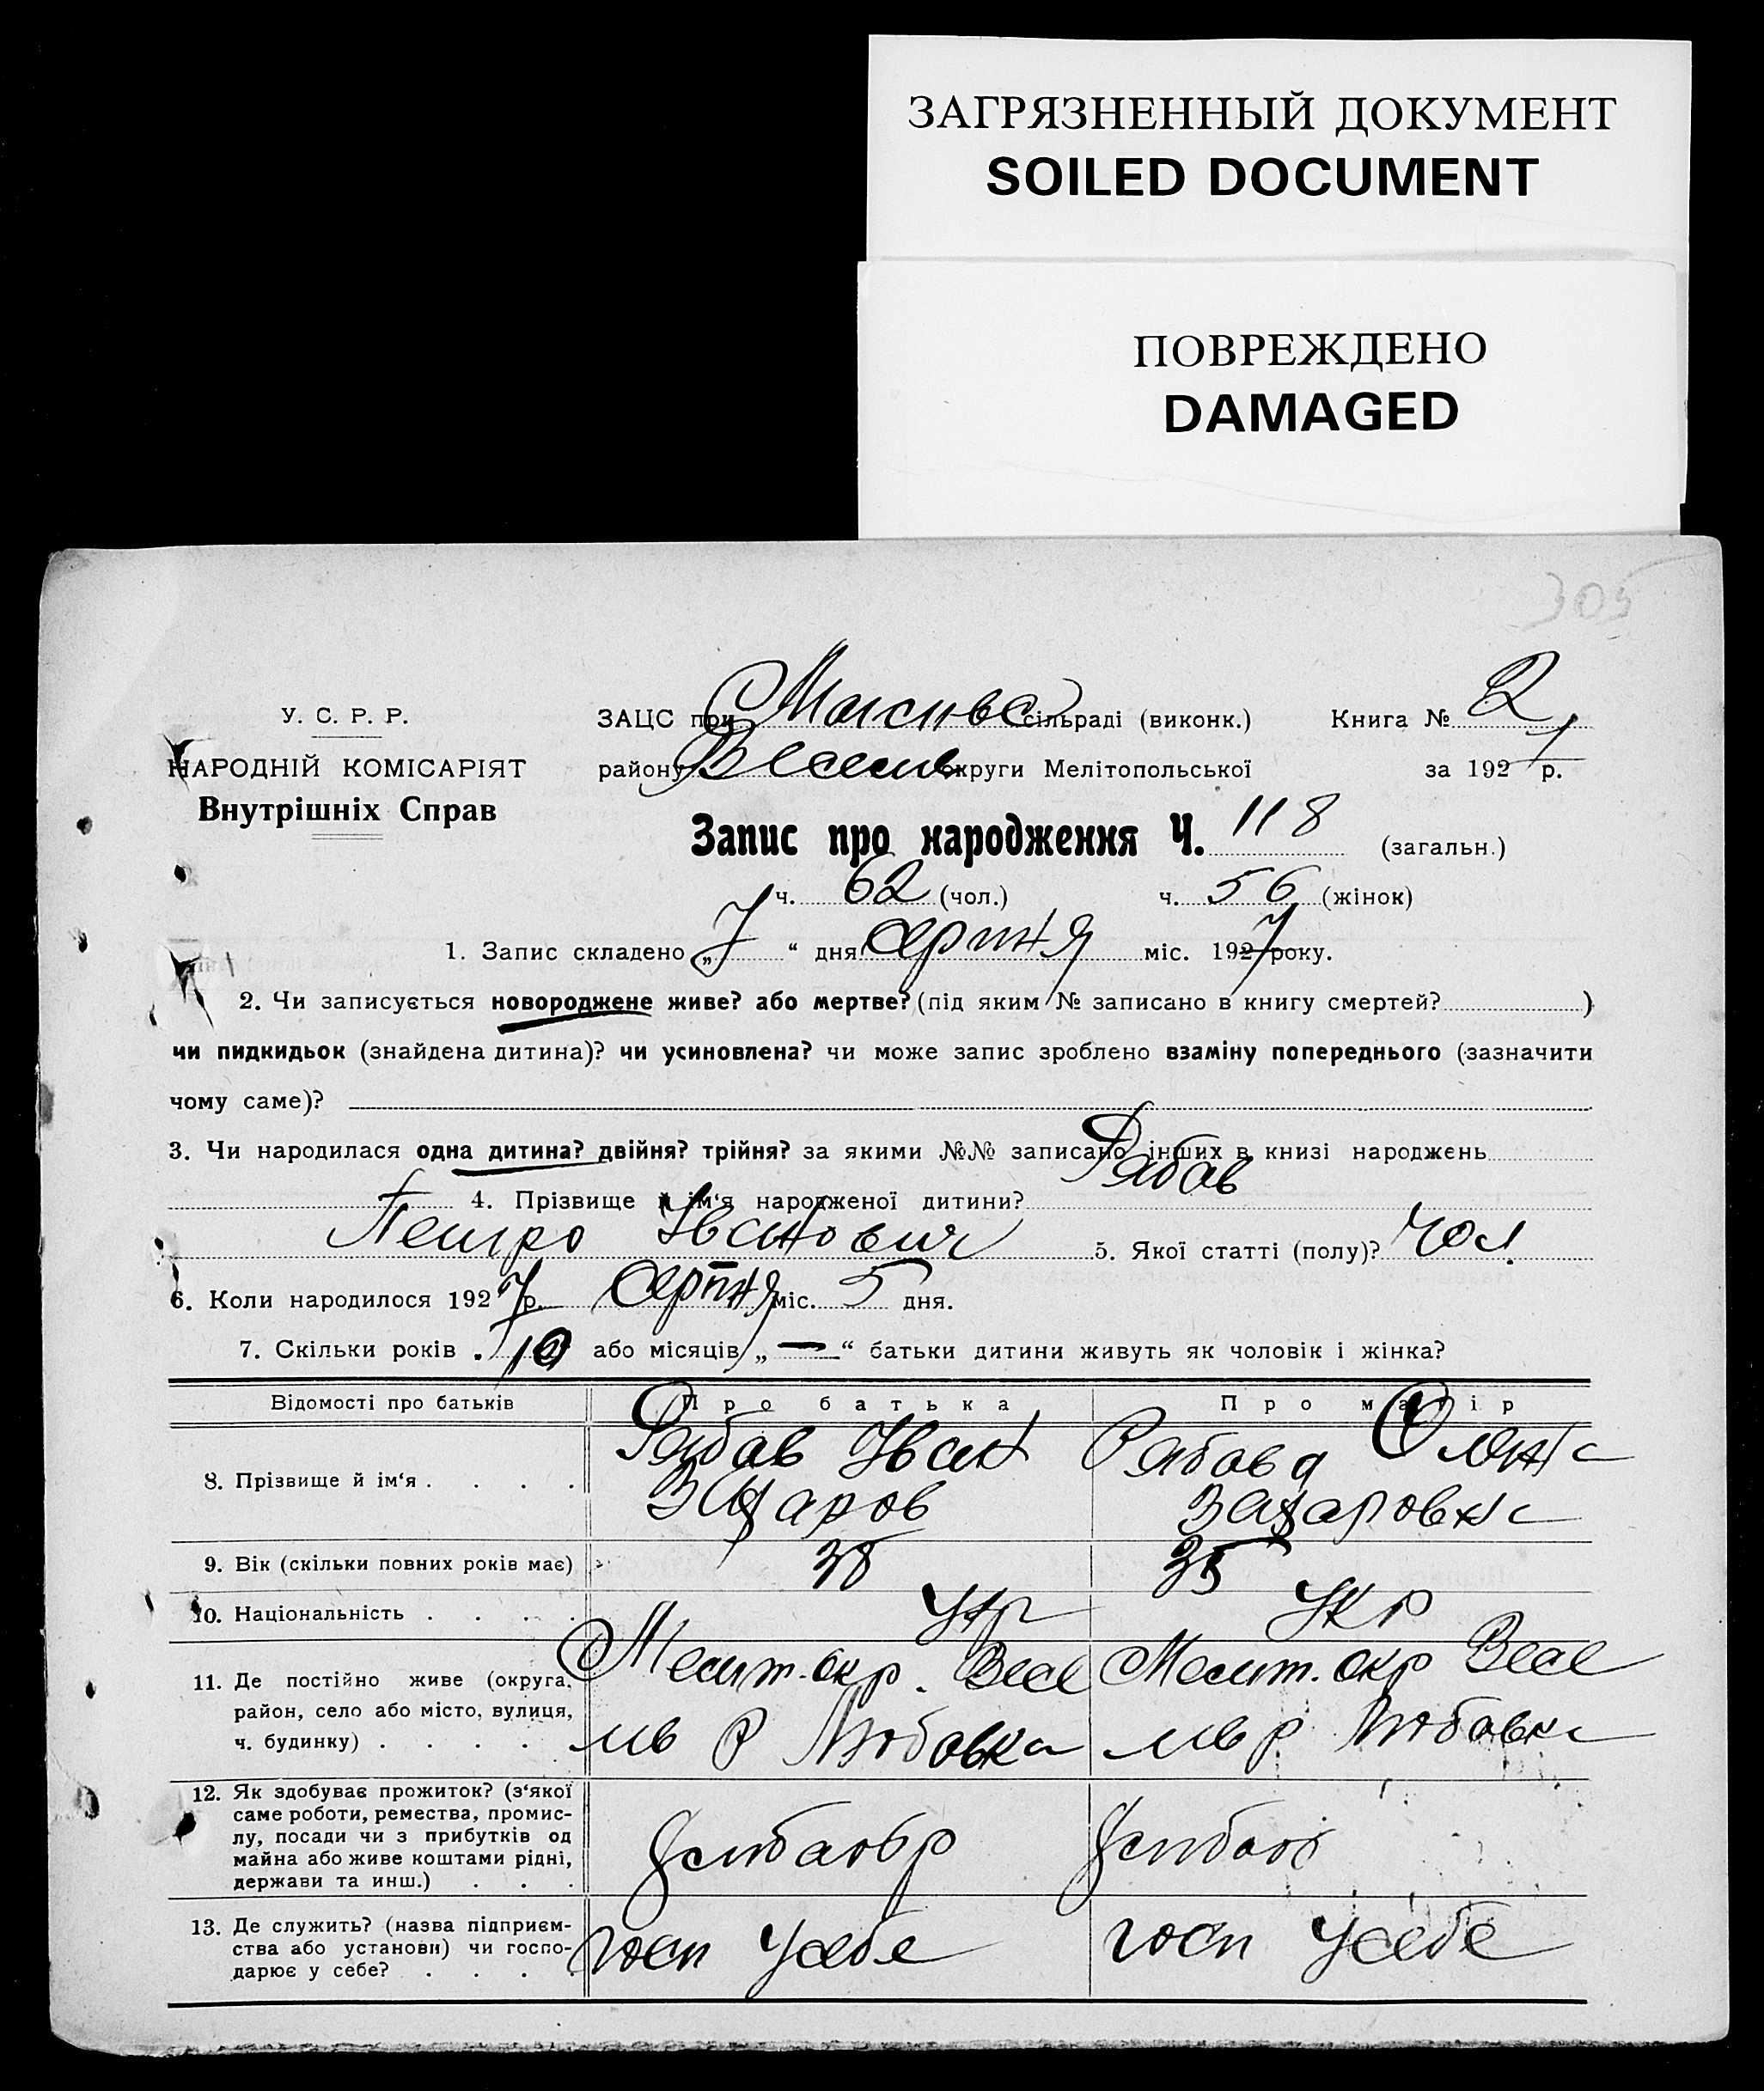 ЗАГРЯЗНЕННЫЙ ДОКУМЕНТ
SOILED DOCUMENT
ПОВРЕЖДЕНО
DAMAGED
305
У. С. Р. Р.
НАРОДНІЙ КОМІСАРІЯТ
Внутрішніх Справ
ЗАЦС при сільраді (виконк.) Книга № 2
району Веселів округи Мелітопольської за 1927 р.
Запис про народження Ч. 118 (загальн.)
ч. 62 (чол.) ч. 56 (жінок)
1. Запис складено „7“ дня серпня міс. 1927 року.
2. Чи записується новороджене живе? або мертве? (під яким № записано в книгу смертей? )
чи пидкидьок (знайдена дитина)? чи усиновлена? чи може запис зроблено взаміну попереднього (зазначити
чому саме)?
3. Чи народилася одна дитина? двійня? трійня? за якими №№ записано інших в книзі народжень
4. Прізвище й ім‘я народженої дитини? Рябов
Петро Іванович 5. Якої статті (полу)? чол.
6. Коли народилося 1927 р. серпня міс. 5 дня.
7. Скільки років 10 або місяців „—“ батьки дитини живуть як чоловік і жінка?
Відомості про батьків Про батька Про матір
8. Прізвище й ім‘я . . . . Рябов Іван Рябова
Захаров Захаровна
9. Вік (скільки повних років має) 38 35
10. Національність . . . . Укр Укр
11. Де постійно живе (округа, район, село або місто, вулиця, ч. будинку) . . . . Мелит. окр. Весе Мелит. окр Весе
лів Р Любовка лів р Любовка
12. Як здобуває прожиток? (з‘якої
саме роботи, ремества, промис-
лу, посади чи з прибутків од
майна або живе коштами рідні,
держави та инш.) . . .
13. Де служить? (назва підприєм-
ства або установи) чи госпо-
дарює у себе? . . . . госп у себе госп у себе